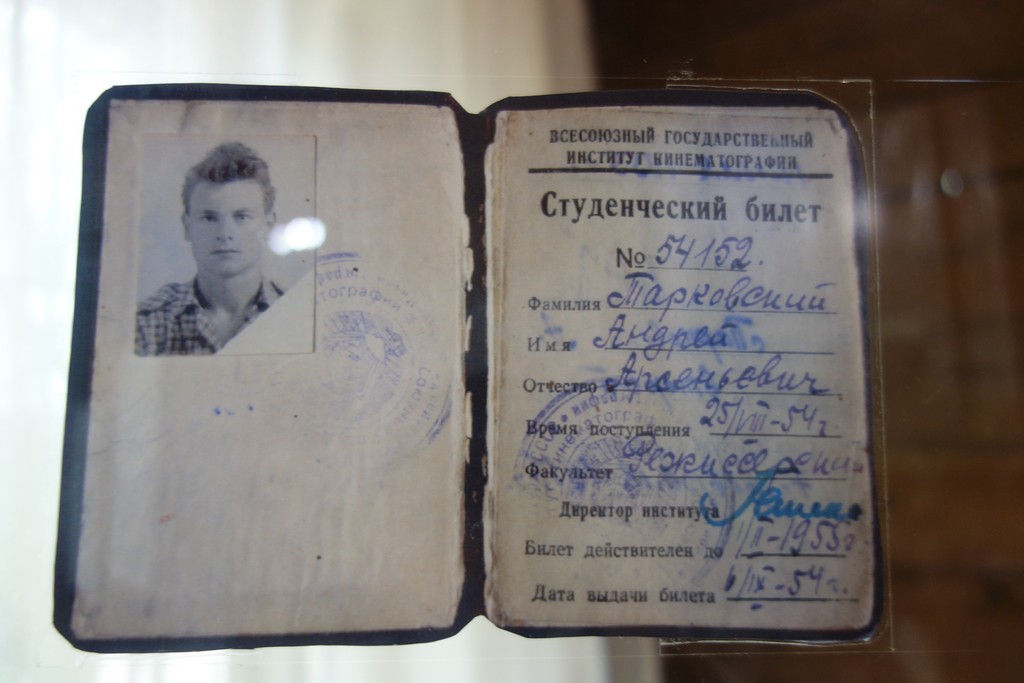 ВСЕСОЮЗНЫЙ ГОСУДАРСТВЕННЫЙ
ИНСТИТУТ КИНЕМАТОГРАФИИ
Студенческий билет
№ 54152.
Фамилия Тарковский
Имя Андрей
Отчество Арсеньевич
Время поступления 25/VIII-54 г.
Факультет Режиссёрский
Директор института
Билет действителен до 1/II-1955 г.
Дата выдачи билета 6/IX-54 г.